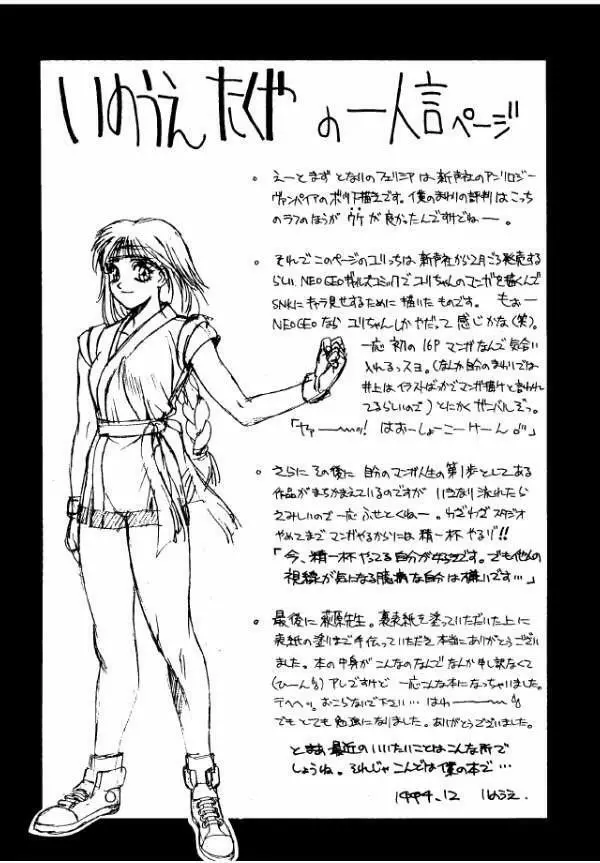 いのうえ たくや の 一人言 ページ
。えーと まず となりの フェリシア は 新声社の アンソロジー
ヴァンパイアの ボツ下描きです。僕の まわりの評判は こっち
のラフのほうが ウケ が 良かったんですけどねー。
。それで このページの ユリっちは 新声社から 2月ごろ発売する
らしい NEOGEOギャルズコミックで ユリちゃんの マンガを描くんで
SNKに キャラ見せするために 描いた ものです。 もぉー
NEOGEO なら ユリちゃんしか やだって 感じかな(笑)。
一応 初の 16P マンガなんで 気合い
入れるっスョ。(なんか自分の まわりでは
井上は イラストばっかでマンガ描けと言われ
てるらしいので) とにかく ガンバルぞっ。
「ヤァー〜〜ッ! はおーしょーこーけーん」
。さらに その後に 自分の マンガ人生の 第1歩として ある
作品が まちかまえているのですが いきなり 流れたら
さみしいので 一応 ふせとくねー。わざわざ スタジオ
やめてまで マンガやるからには 精一杯 やるゾ!!
「今、精一杯やってる自分が好きです。でも他人の
視線が気になる臆病な自分は嫌いです…」
。最後に 萩原先生。裏表紙を 塗っていただいた上に
表紙の塗りまで 手伝っていただき 本当にありがとうござい
ました。本の中身が こんなのなんで なんか申し訳なくて
(ひーん) アレですけど 一応こんな本になっちゃいました。
テヘヘッ。おこらないで下さい… はわー〜〜
でも とても 勉強になりました。ありがとうございました。
とまぁ 最近の いいたいことは こんな所で
しょうね。それじゃ こんどは 僕の本で…
1994.12 いのうえ.